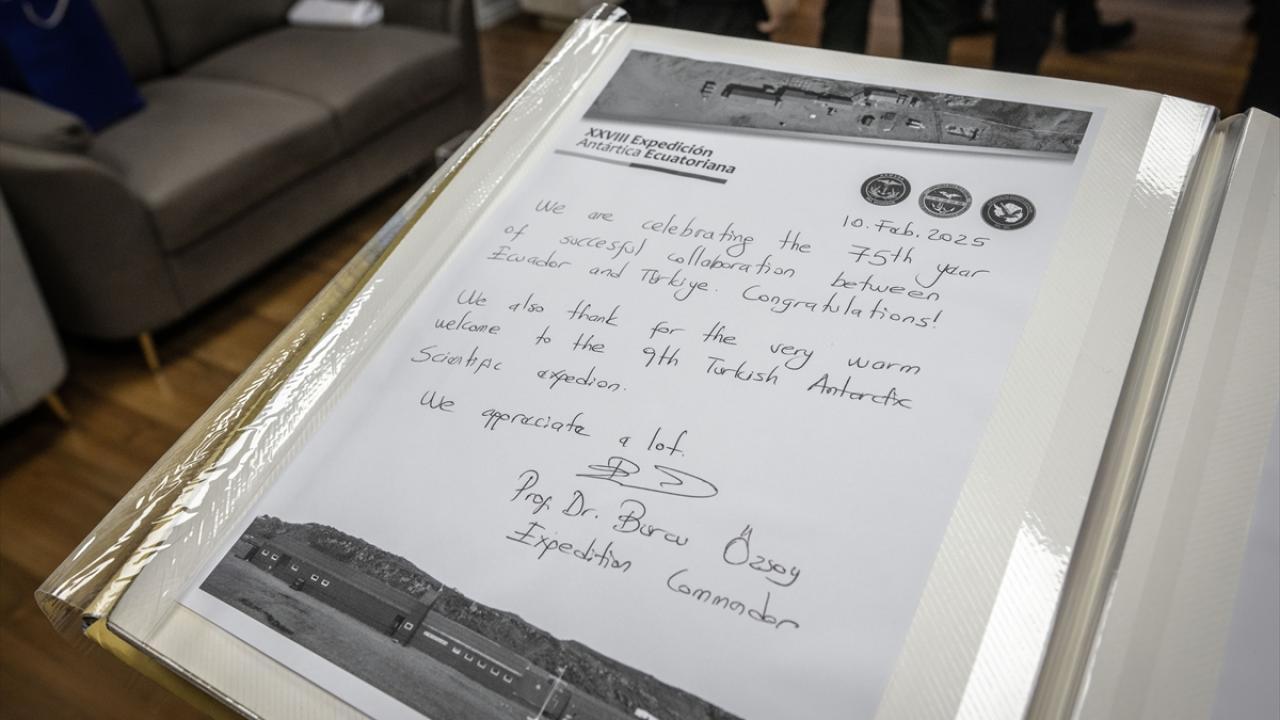 XXVIII Expedición
Antártica Ecuatoriana
10. Feb. 2025
We are celebrating the 75th year
of succesful collaboration between
Ecuador and Türkiye. Congratulations!
We also thank for the very warm
welcome to the 9th Turkish Antarctic
Scientific expedion.
We appreciate a lot.
Prof. Dr. Burcu Özsoy
Expedition Commander